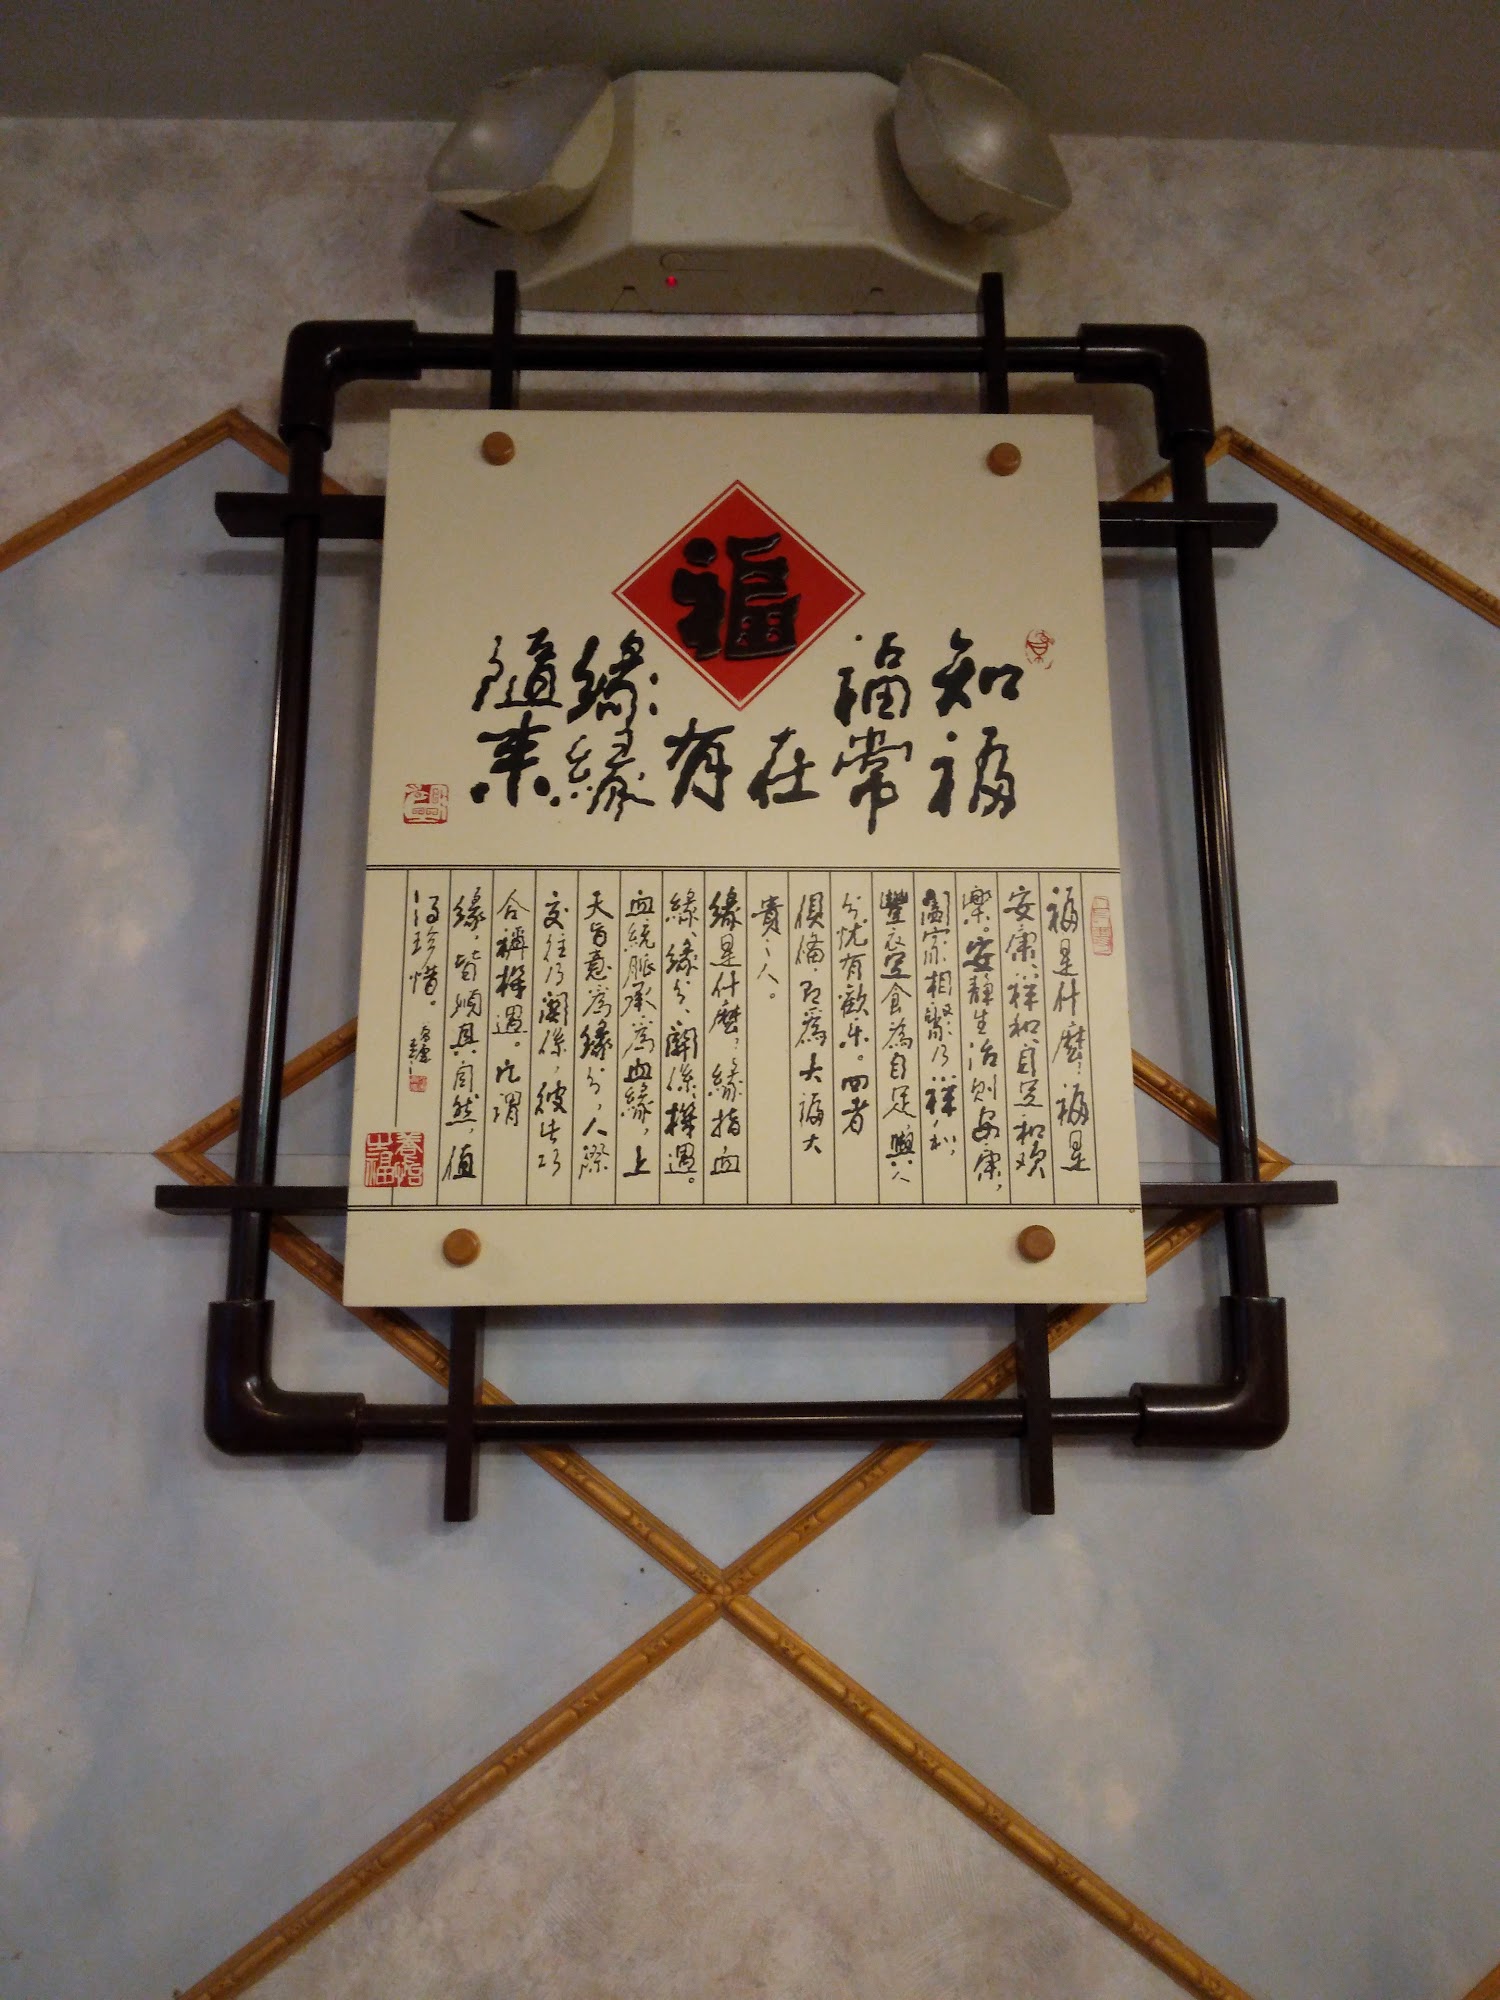 福
知福
福常
在
有
緣緣
隨來
福是什麼，福是
安康、祥和、自足和歡
樂。安靜生活則安康，
闔家相聚乃祥和，
豐衣足食為自足，與人
分忧有歡乐。四者
俱備，即為大福大
貴之人。
緣是什麼，緣指血
緣、緣分、關係、機遇。
血統脈承為血緣，上
天旨意為緣分，人際
交往乃關係，彼此巧
合稱機遇。凡謂
緣，皆順其自然，值
得珍惜。